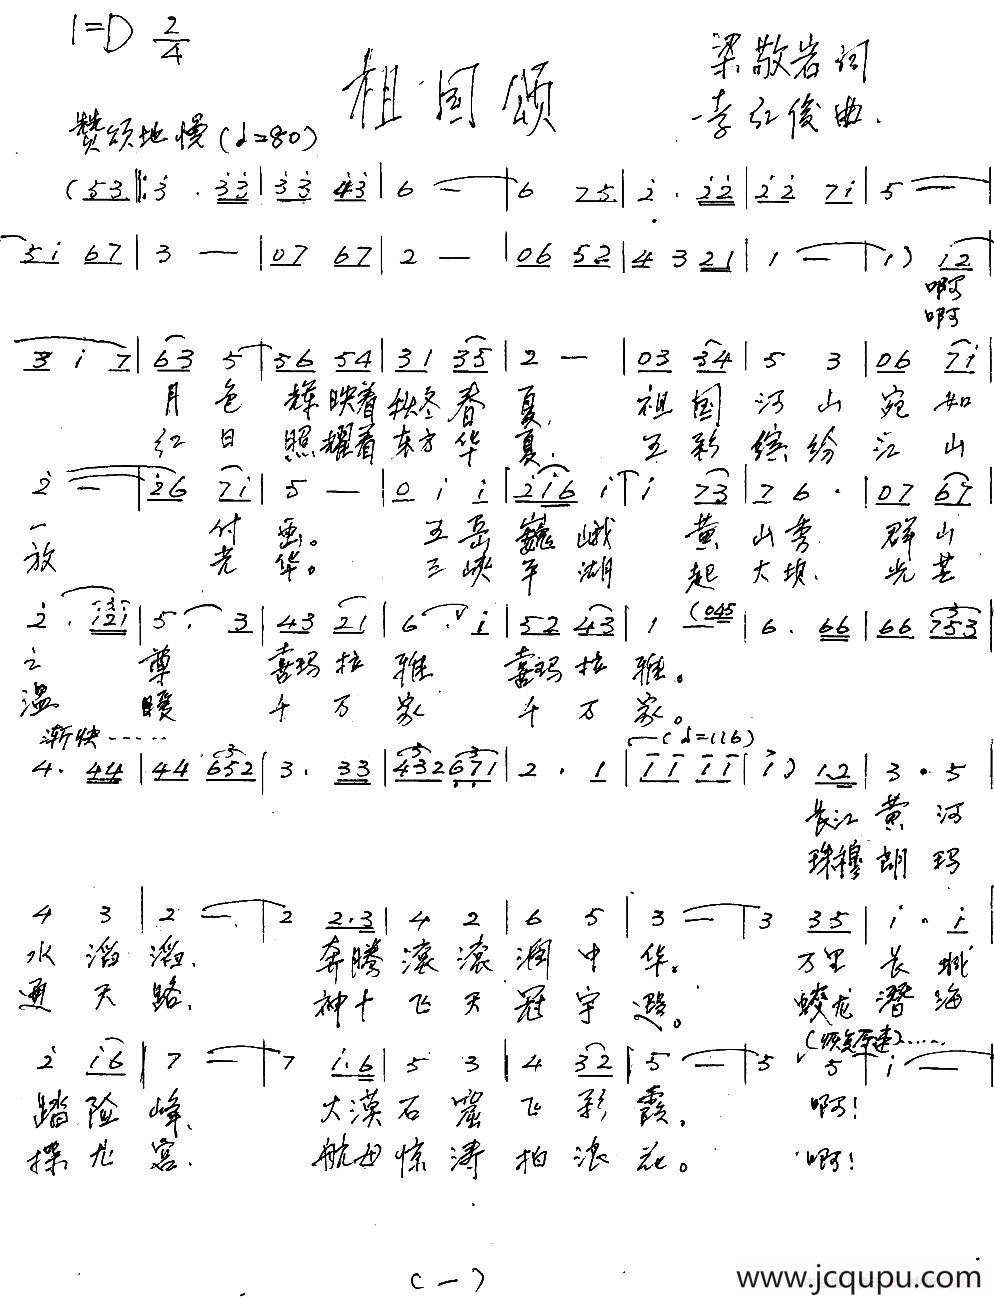 1=D 2/4
祖国颂
梁敬岩词
李红俊曲.
赞颂地慢(♩=80)
(53 ‖: 3 . 33 | 33 43 | 6 — | 6 75 | 2 . 22 | 22 7i | 5 — |
5i 67 | 3 — | 07 67 | 2 — | 06 52 | 4 3 21 | 1 — | 1) i2 |
啊
啊
3 i 7 | 63 5 | 56 54 | 31 35 | 2 — | 03 34 | 5 3 | 06 7i |
月色 辉映着秋冬春夏, 祖国河山宛如
红日 照耀着东方华夏. 五彩缤纷江山
2 — | 26 7i | 5 — | 0 i i | 2i6 i | i 73 | 7 6 . | 07 67 |
一 付画。 五岳巍峨 黄山秀 群山
放 光华。 三峡平湖 起大坝. 光芒
2 . i2i | 5 . 3 | 43 21 | 6 . i | 52 43 | 1 (045 | 6 . 66 | 66 753 |
之 尊 喜玛拉雅 喜玛拉雅。
温 暖 千万家 千万家。
渐快…… (♩=116)
4 . 44 | 44 652 | 3 . 33 | 432 671 | 2 . 1 | i i i i | i) 1.2 | 3 . 5 |
长江黄河
珠穆朗玛
4 3 | 2 — | 2 2.3 | 4 2 | 6 5 | 3 — | 3 35 | i . i |
水滔滔, 奔腾滚滚润中华。 万里长城
通天路, 神十飞天冠宇 。 蛟龙潜海
(恢复原速)……
2 i6 | 7 — | 7 i.6 | 5 3 | 4 32 | 5 — | 5 5 | i — |
踏险峰, 大漠石窟飞彩霞, 啊!
探龙宫. 航母惊涛拍浪花。 啊!
(一)
www.jcqupu.com